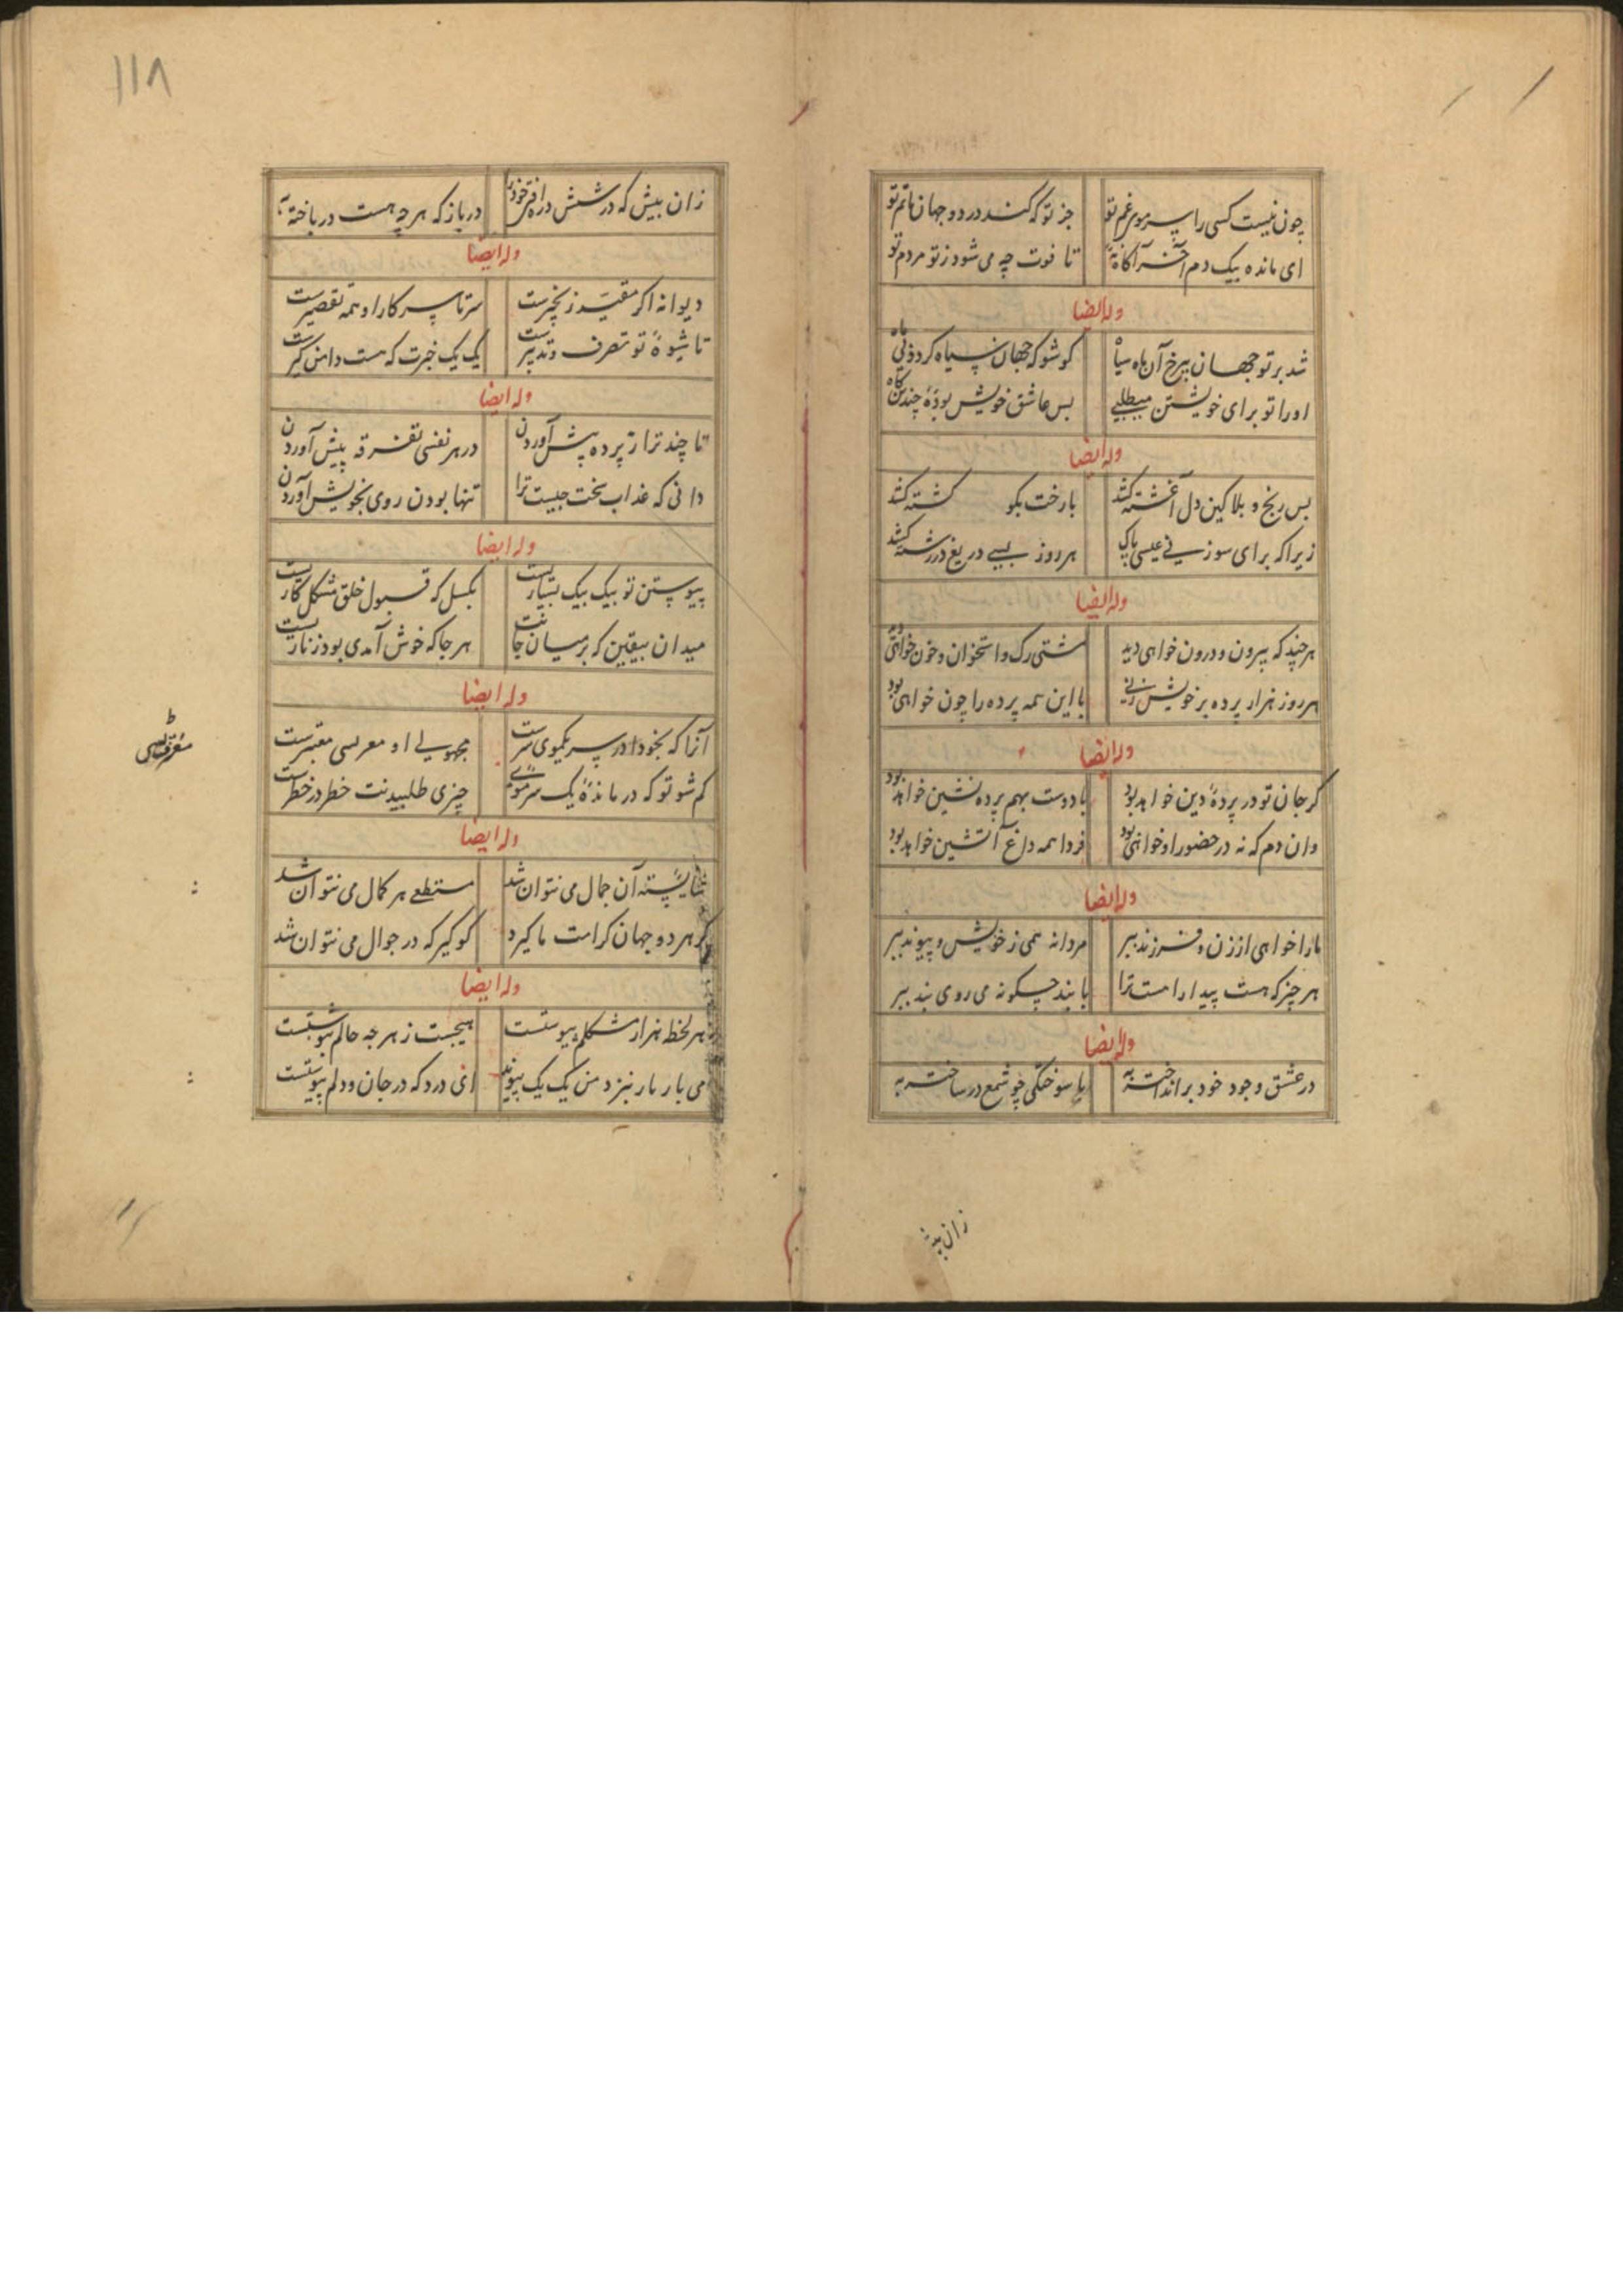 چون نیست کسی را سر موی غم تو جز تو که کند در دو جهان ماتم تو
ای مانده بیک دم آخر آگاه نهٔ تا فوت چه می شود ز تو هر دم تو
وله ایضا
شد بر تو جهان بی رخ آن ماه سیاه کو شو که جهان سیاه کردد بی ماه
او را تو برای خویشتن میطلبی بس عاشق خویش بودهٔ چندین کاه
وله ایضا
بس رنج و بلا کین دل آغشته کشد بارخت بکو کشته کشد
زیرا که برای سوزنی عیسی پاک هر روز بسی دریغ در رشته کشد
وله ایضا
هر چند که بیرون و درون خواهی دید مشتی رک و استخوان و خون خواهی دید
هر روز هزار پرده بر خویش زنی با این همه پرده را چون خواهی بود
وله ایضا
کر جان تو در پردهٔ دین خواهد بود با دوست بهم پرده نشین خواهد بود
وان دم که نه در حضور او خواهی بود فردا همه داغ آتشین خواهد بود
وله ایضا
ما را خواهی از زن و فرزند ببر مردانه همی ز خویش و پیوند ببر
هر چیز که هست بند راهست ترا با بند چکونه می روی بند ببر
وله ایضا
در عشق وجود خود برانداخته به با سوختکی چو شمع در ساخته به
زان پیش
۱۱۸
زان بیش که در شش دره افتی خود را در باز که هر چه هست در باخته به
وله ایضا
دیوانه اکر مقید زنجیرست سر تا سر کار او همه تقصیرست
تا شیوهٔ تو تصرف و تدبیرست یک یک چیزت که هست دامن کیرست
وله ایضا
تا چند ترا ز پرده پیش آوردن در هر نفسی تفرقه پیش آوردن
دانی که عذاب سخت چیست ترا تنها بودن روی بخویش آوردن
وله ایضا
پیوستن تو بیک بیک بسیارست بکسل که قبول خلق مشکل کارست
میدان بیقین که بر میان جانت هر جا که خوش آمدی بود زنارست
وله ایضا
آنرا که بخود در سر یکموی سرست مجهولی او معرفی معتبرست
کم شو تو که در ماندهٔ یک سر موی چیزی طلبیدنت خطر در خطرست
وله ایضا
شایستهٔ آن جمال می نتوان شد مستطلع هر کمال می نتوان شد
کر هر دو جهان کرامت ما کیرد کو کیر که در جوال می نتوان شد
وله ایضا
هر لحظه هزار مشکلم پیوستست هیچست ز هر چه حاصلم پیوستست
می بار بار نبرد من یک یک پیوند انی درد که در جان و دلم پیوستست